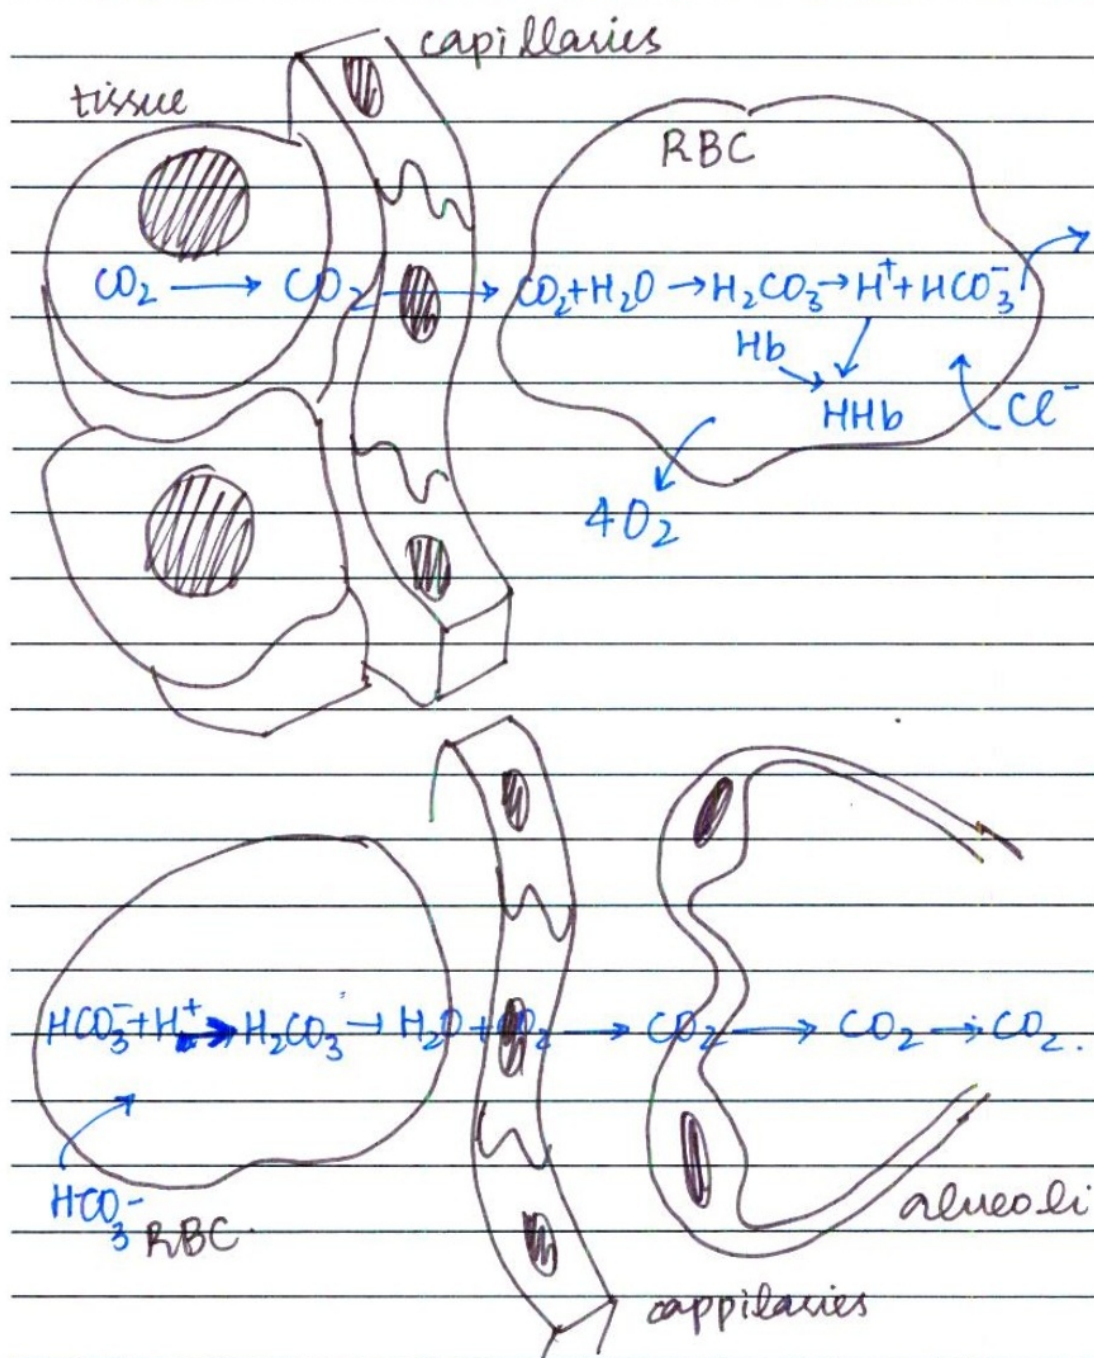 capillaries
tissue
RBC
CO₂ → CO₂ → CO₂+H₂O → H₂CO₃ → H⁺ + HCO₃⁻
Hb
HHb
Cl⁻
4O₂
HCO₃⁻ + H⁺ → H₂CO₃ → H₂O + CO₂ → CO₂ → CO₂ → CO₂.
HCO₃⁻
RBC
alveoli
cappilaries